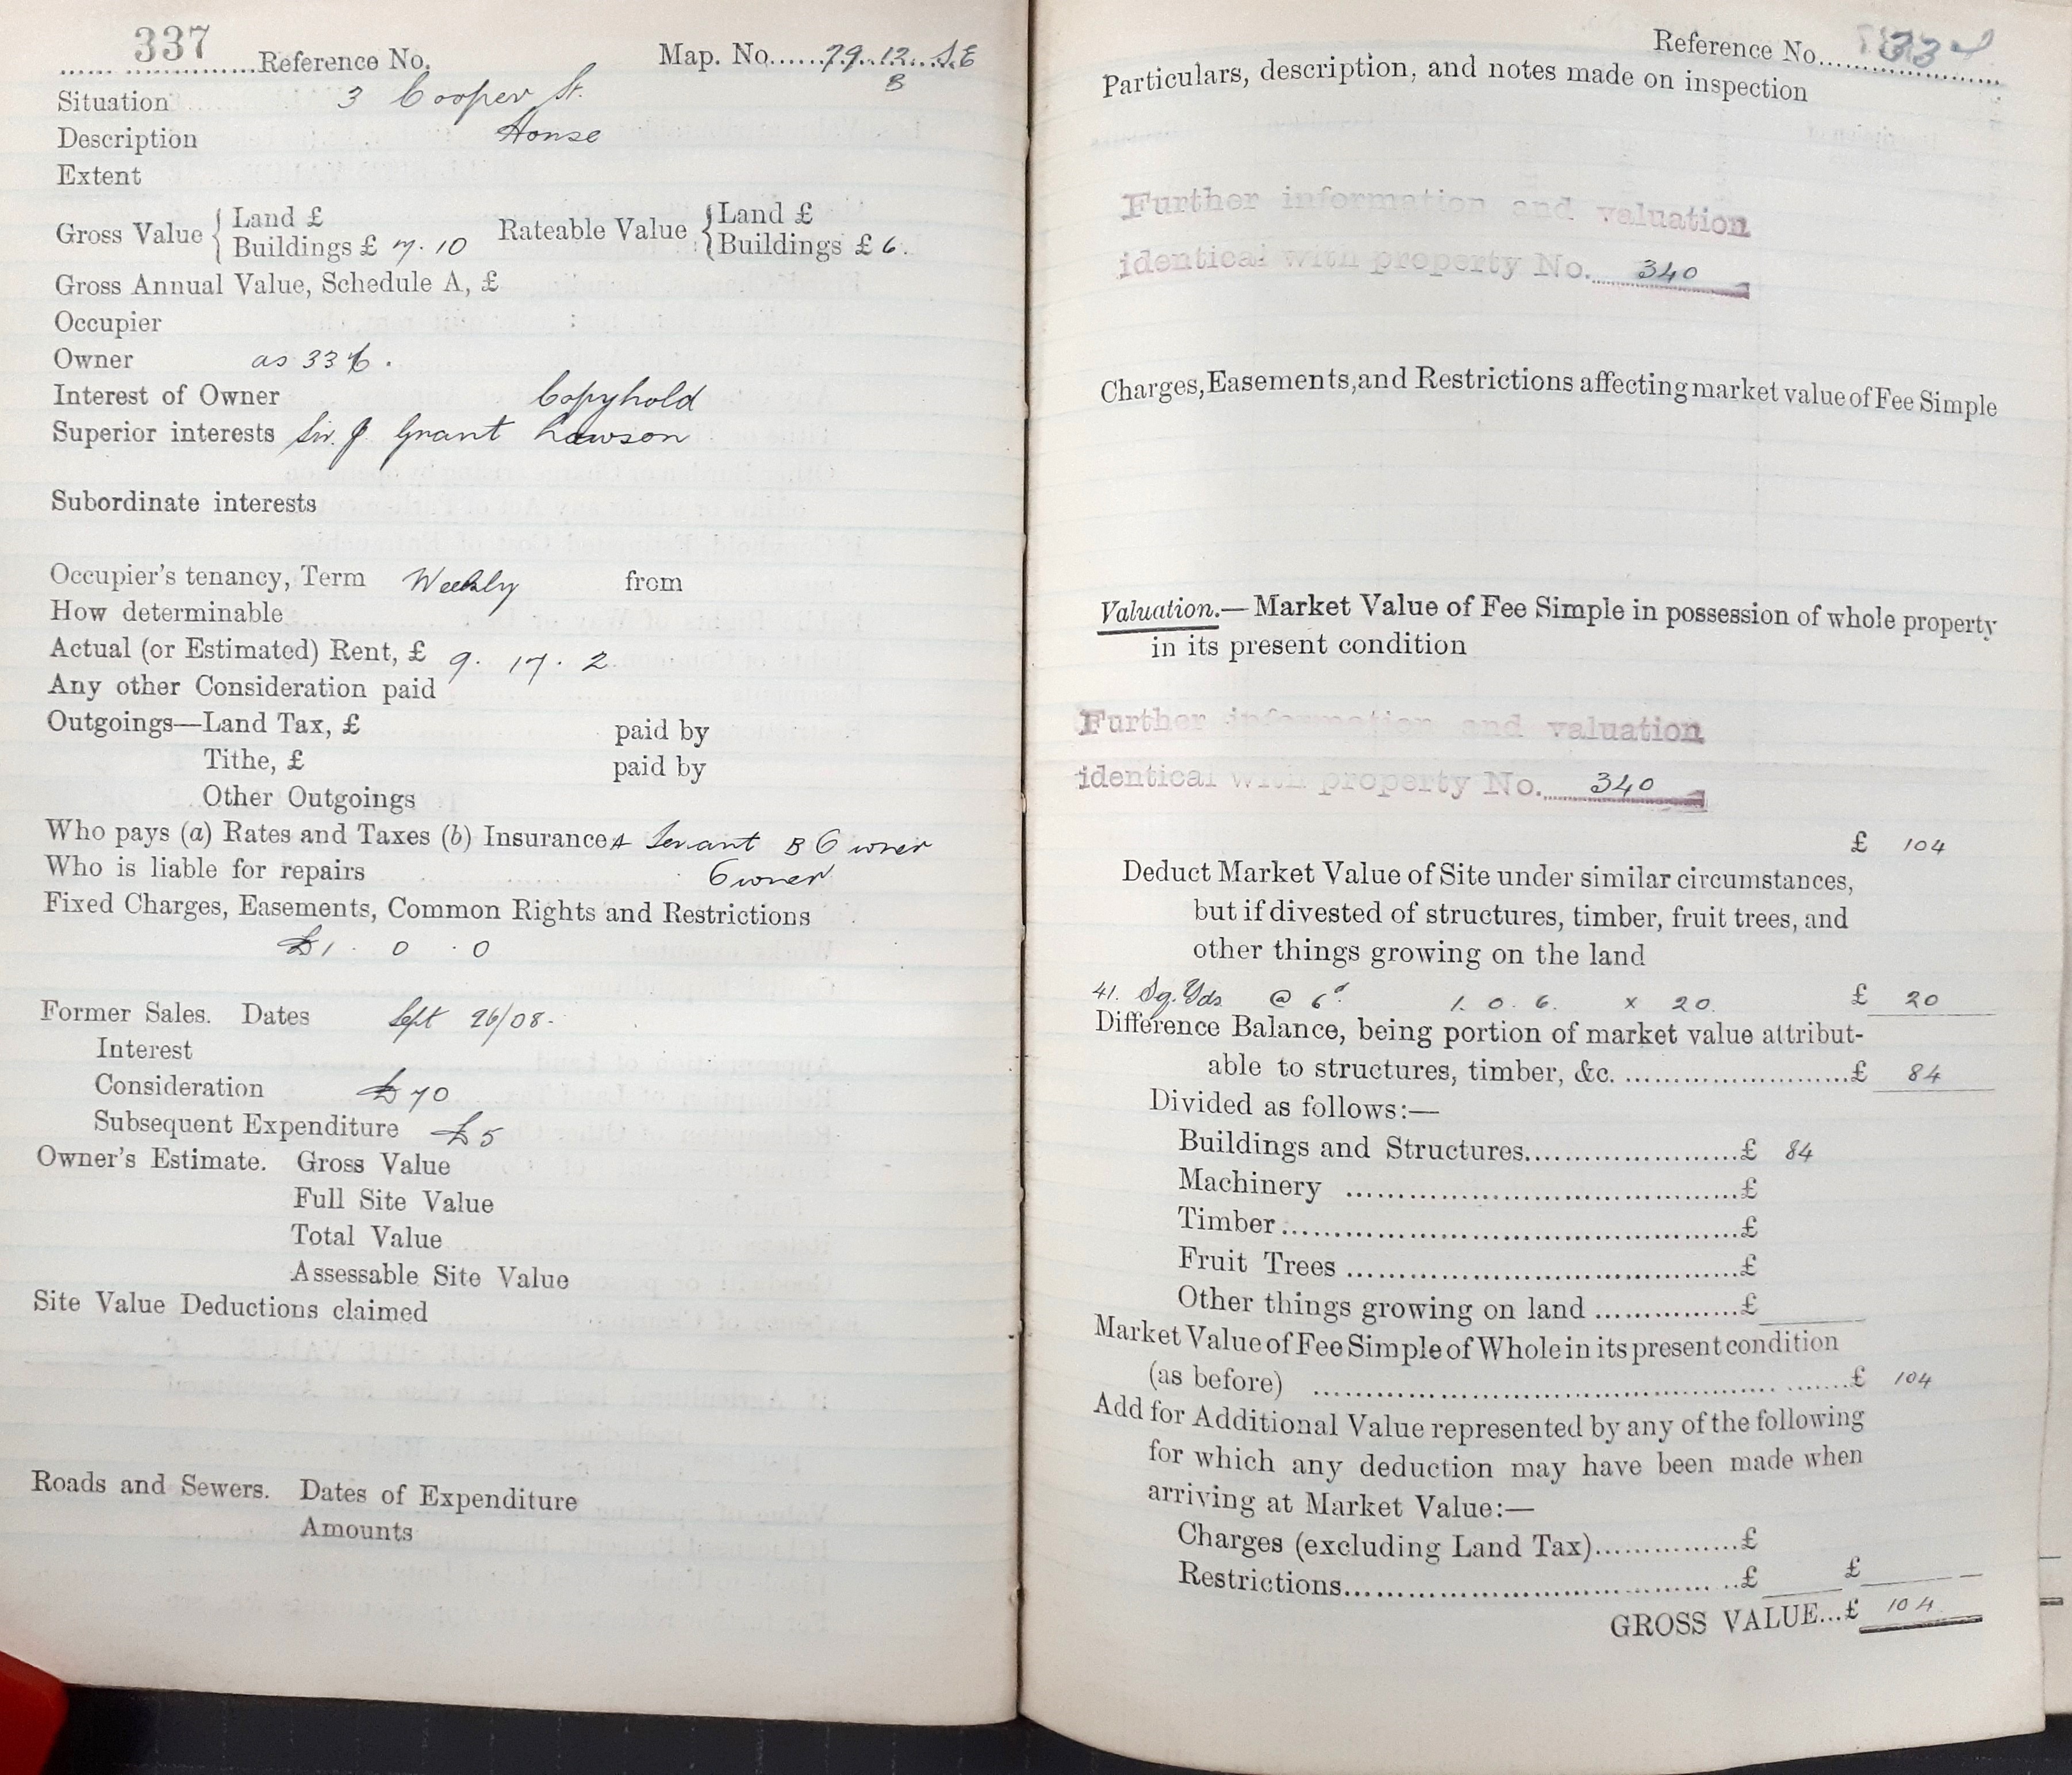 337 Reference No. Map. No. 79.12. S.E
B
Situation 3 Cooper St.
Description House
Extent
Gross Value { Land £ Rateable Value { Land £
Buildings £ 7.10 Buildings £ 6.
Gross Annual Value, Schedule A, £
Occupier
Owner as 336.
Interest of Owner Copyhold
Superior interests Sir. J Grant Lawson
Subordinate interests
Occupier's tenancy, Term Weekly from
How determinable
Actual (or Estimated) Rent, £ 9. 17. 2
Any other Consideration paid
Outgoings—Land Tax, £ paid by
Tithe, £ paid by
Other Outgoings
Who pays (a) Rates and Taxes (b) Insurance A Tenant B Owner
Who is liable for repairs Owner
Fixed Charges, Easements, Common Rights and Restrictions
£1 . 0 . 0
Former Sales. Dates Sept 26/08.
Interest
Consideration £70
Subsequent Expenditure £5
Owner's Estimate. Gross Value
Full Site Value
Total Value
Assessable Site Value
Site Value Deductions claimed
Roads and Sewers. Dates of Expenditure
Amounts
Reference No.
Particulars, description, and notes made on inspection
Further information and valuation
identical with property No. 340
Charges, Easements, and Restrictions affecting market value of Fee Simple
Valuation.—Market Value of Fee Simple in possession of whole property
in its present condition
Further information and valuation
identical with property No. 340
£ 104
Deduct Market Value of Site under similar circumstances,
but if divested of structures, timber, fruit trees, and
other things growing on the land
41. Sq. Yds @ 6d 1. 0. 6. x 20. £ 20
Difference Balance, being portion of market value attribut-
able to structures, timber, &c. ........................£ 84
Divided as follows:—
Buildings and Structures.......................£ 84
Machinery ..........................................£
Timber.................................................£
Fruit Trees ..........................................£
Other things growing on land ...............£
Market Value of Fee Simple of Whole in its present condition
(as before) ........................................................£ 104
Add for Additional Value represented by any of the following
for which any deduction may have been made when
arriving at Market Value:—
Charges (excluding Land Tax)...............£
Restrictions..........................................£ £
GROSS VALUE...£ 104